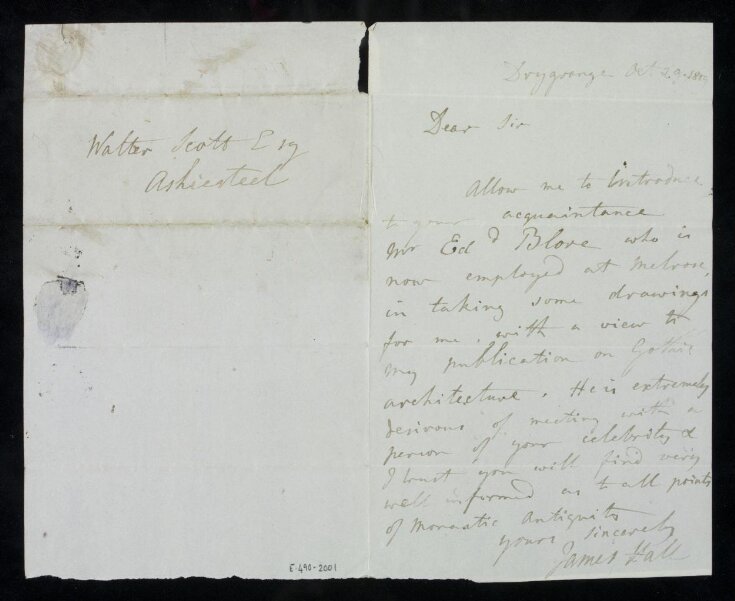 Walter Scott Esq
Ashiesteel
E.490-2001
Drygrange Oct 29
Dear Sir
Allow me to Introduce
to your acquaintance
Mr Edd Blore who is
now employed at Melrose,
in taking some drawings
for me, with a view to
my publication on Gothic
architecture. He is extremely
desirous of meeting with a
person of your celebrity &
I trust you will find very
well informed as to all points
of Monastic Antiquity
yours sincerely
James Hall